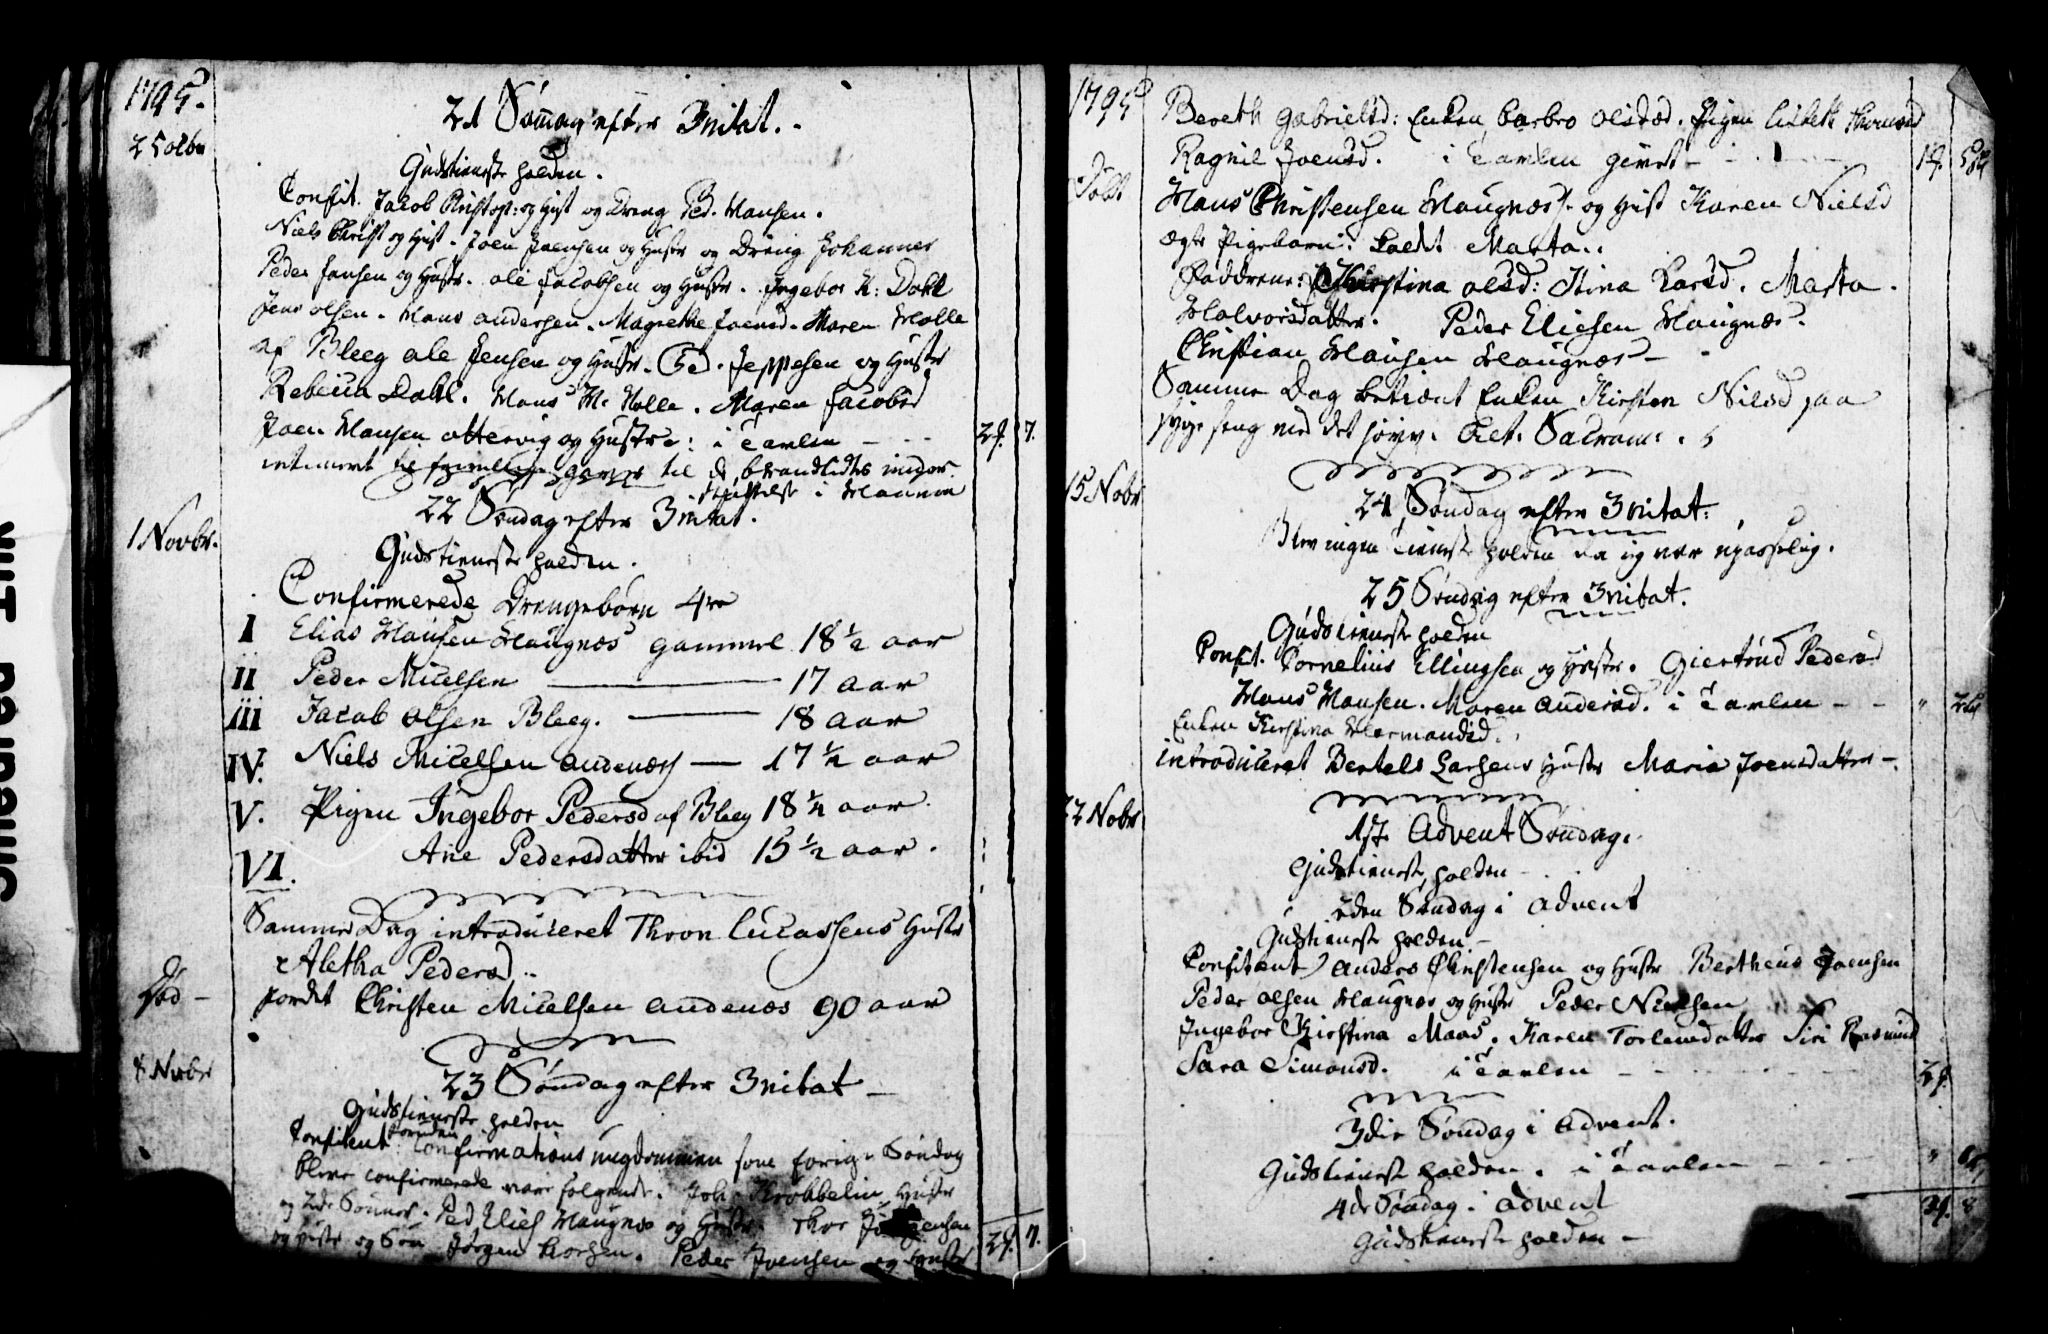 1795.
25 octbr
21 Sømag efter Trinitat.
Gudstieneste holden.
Confit. Jacob Christop: og Hust og Dreng Ped. Hansen.
Niels Christ og Hust. Joen Joensen og Hustr og Dreng Johannes
Peder Jansen og Hustr. ole Jacobsen og Hustr. Ingebor H: Dahl
Jens olsen. Hans andersen. Magrethe Joensd. Maren Holle
af Bleeg ole Jensen og Hustr. Jeppesen og Hustr
Rebecca Dahl. Hans M: Holle. Maren Jacobsd
Joen Hansen ottervig og Hustru: i Tavlen - - - 2. 7.
intimeret til frivillige gaver til de brandlidtes
i Havnen
1 Novbr.
22 Søndag efter Trinitat.
Gudstieneste holden.
Confirmerede Drengebørn 4re
I Elias Hansen Haugnæs gammel 18½ aar
II Peder Micelsen 17 aar
iii Jacob olsen Bleeg. 18 aar
IV. Niels Micelsen andenæs 17½ aar
V. Pigen Ingebor Pedersd af Bleeg 18½ aar.
VI. Ane Pedersdatter ibid 15½ aar.
Samme Dag introduceret Thron Lucassens Hustr
Aletha Pedersd.
død -
jordet Christen Micelsen andenæs 90 aar
8 Novbr
23 Søndag efter Trinitat -
Gudstieneste holden
Confitent foruden
Confirmations ungdommen som forige Søndag
bleve confirmerede vare følgende. Joh. Krobbelin Hustr
og 2de Sønner. Ped Elies Haugnæs og Hustr. Thor
og Hustr og Søn Jørgen Larsen. Peder Joensen og Hustr
2. 7.
1795
Bereth Gabrielsd: Enken barbro olsdad. Pigen Lisbeth
Ragnil Joensd. i Tavlen givet - - - 1.
døbt
Hans Christensen Haugnæs. og Hust Karen Nielsd
ægte Pigebarn. kaldt Marta..
Faddrene: Christina olsd: Stina Larsd. Marta.
Halvorsdatter. Peder Eliesen Haugnæs.
Christian Hansen Haugnæs -
Samme Dag betient Enken Kirsten Nilsd paa
syge seng med det høyv. Alt. Sacram.
15 Nobr
24 Søndag efter Trinitat.
Blev ingen tieneste holden da ieg var upasselig.
25 Søndag efter Trinitat.
Gudstieneste holden
Confit. Cornelius Ellingsen og Hustr. Giertrud Pedersd
Hans Hansen. Maren andersd. i Tavlen - - "
Enken Kirstina Hermandsd.
introduceret Bertels Larsens Hustr Maria Joensdatter -.
22 Nobr
1ste Advent Søndag.
Gudstieneste holden -
2den Søndag i advent
Gudstieneste holden -
Confitent anders Christensen og Hustr Bertheus Joensen
Peder olsen Haugnæs og Hustr Peder Nielsen
Ingebor Kirstina Maas. Karen Torlevsdatter Siri Rasmusd
Sara Simonsd. i Tavlen - - - 2.
3die Søndag i Advent.
Gudstieneste holden. i Tavlen - - - "
4de Søndag i advent
Gudstieneste holden -
8